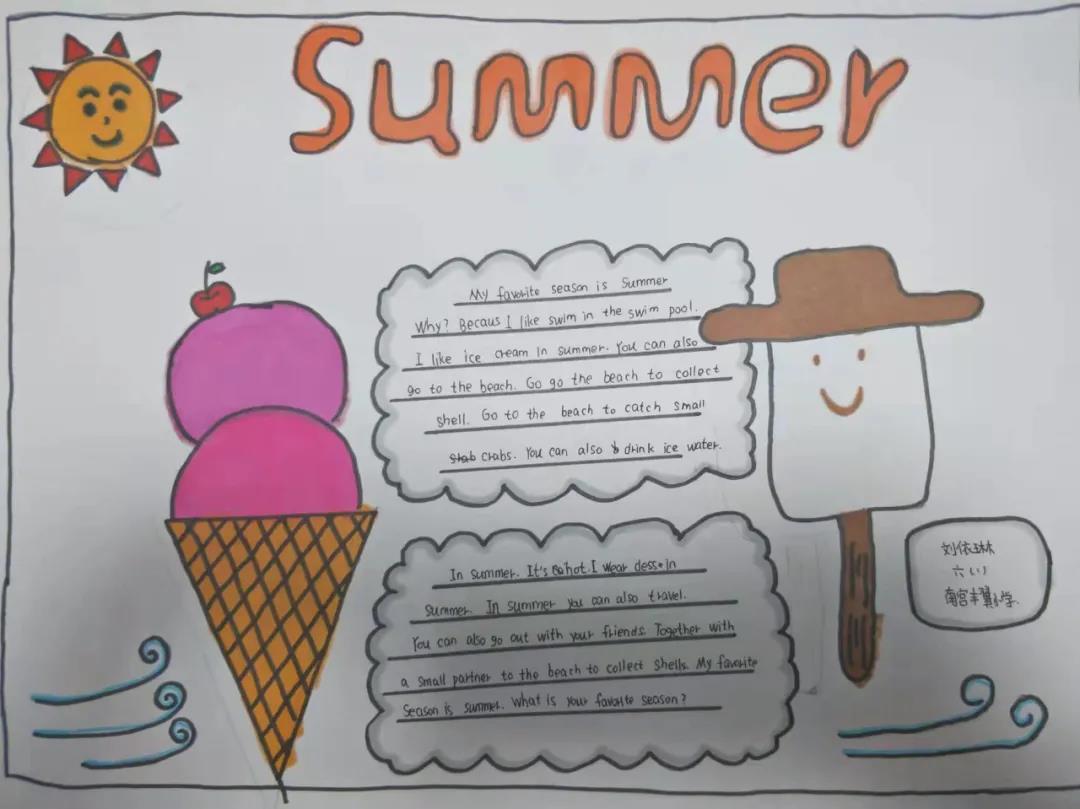 Summer
My favorite season is Summer
Why? Becaus I like swim in the swim pool.
I like ice cream in summer. You can also
go to the beach. Go go the beach to collect
shell. Go to the beach to catch small
crabs. You can also drink ice water.
In summer. It's hot. I wear dess in
Summer. In summer you can also travel.
You can also go out with your friends. Together with
a small partner to the beach to collect shells. My favorite
Season is summer. What is your favorite season?
刘依琳
六(1)
南宫丰翼小学.